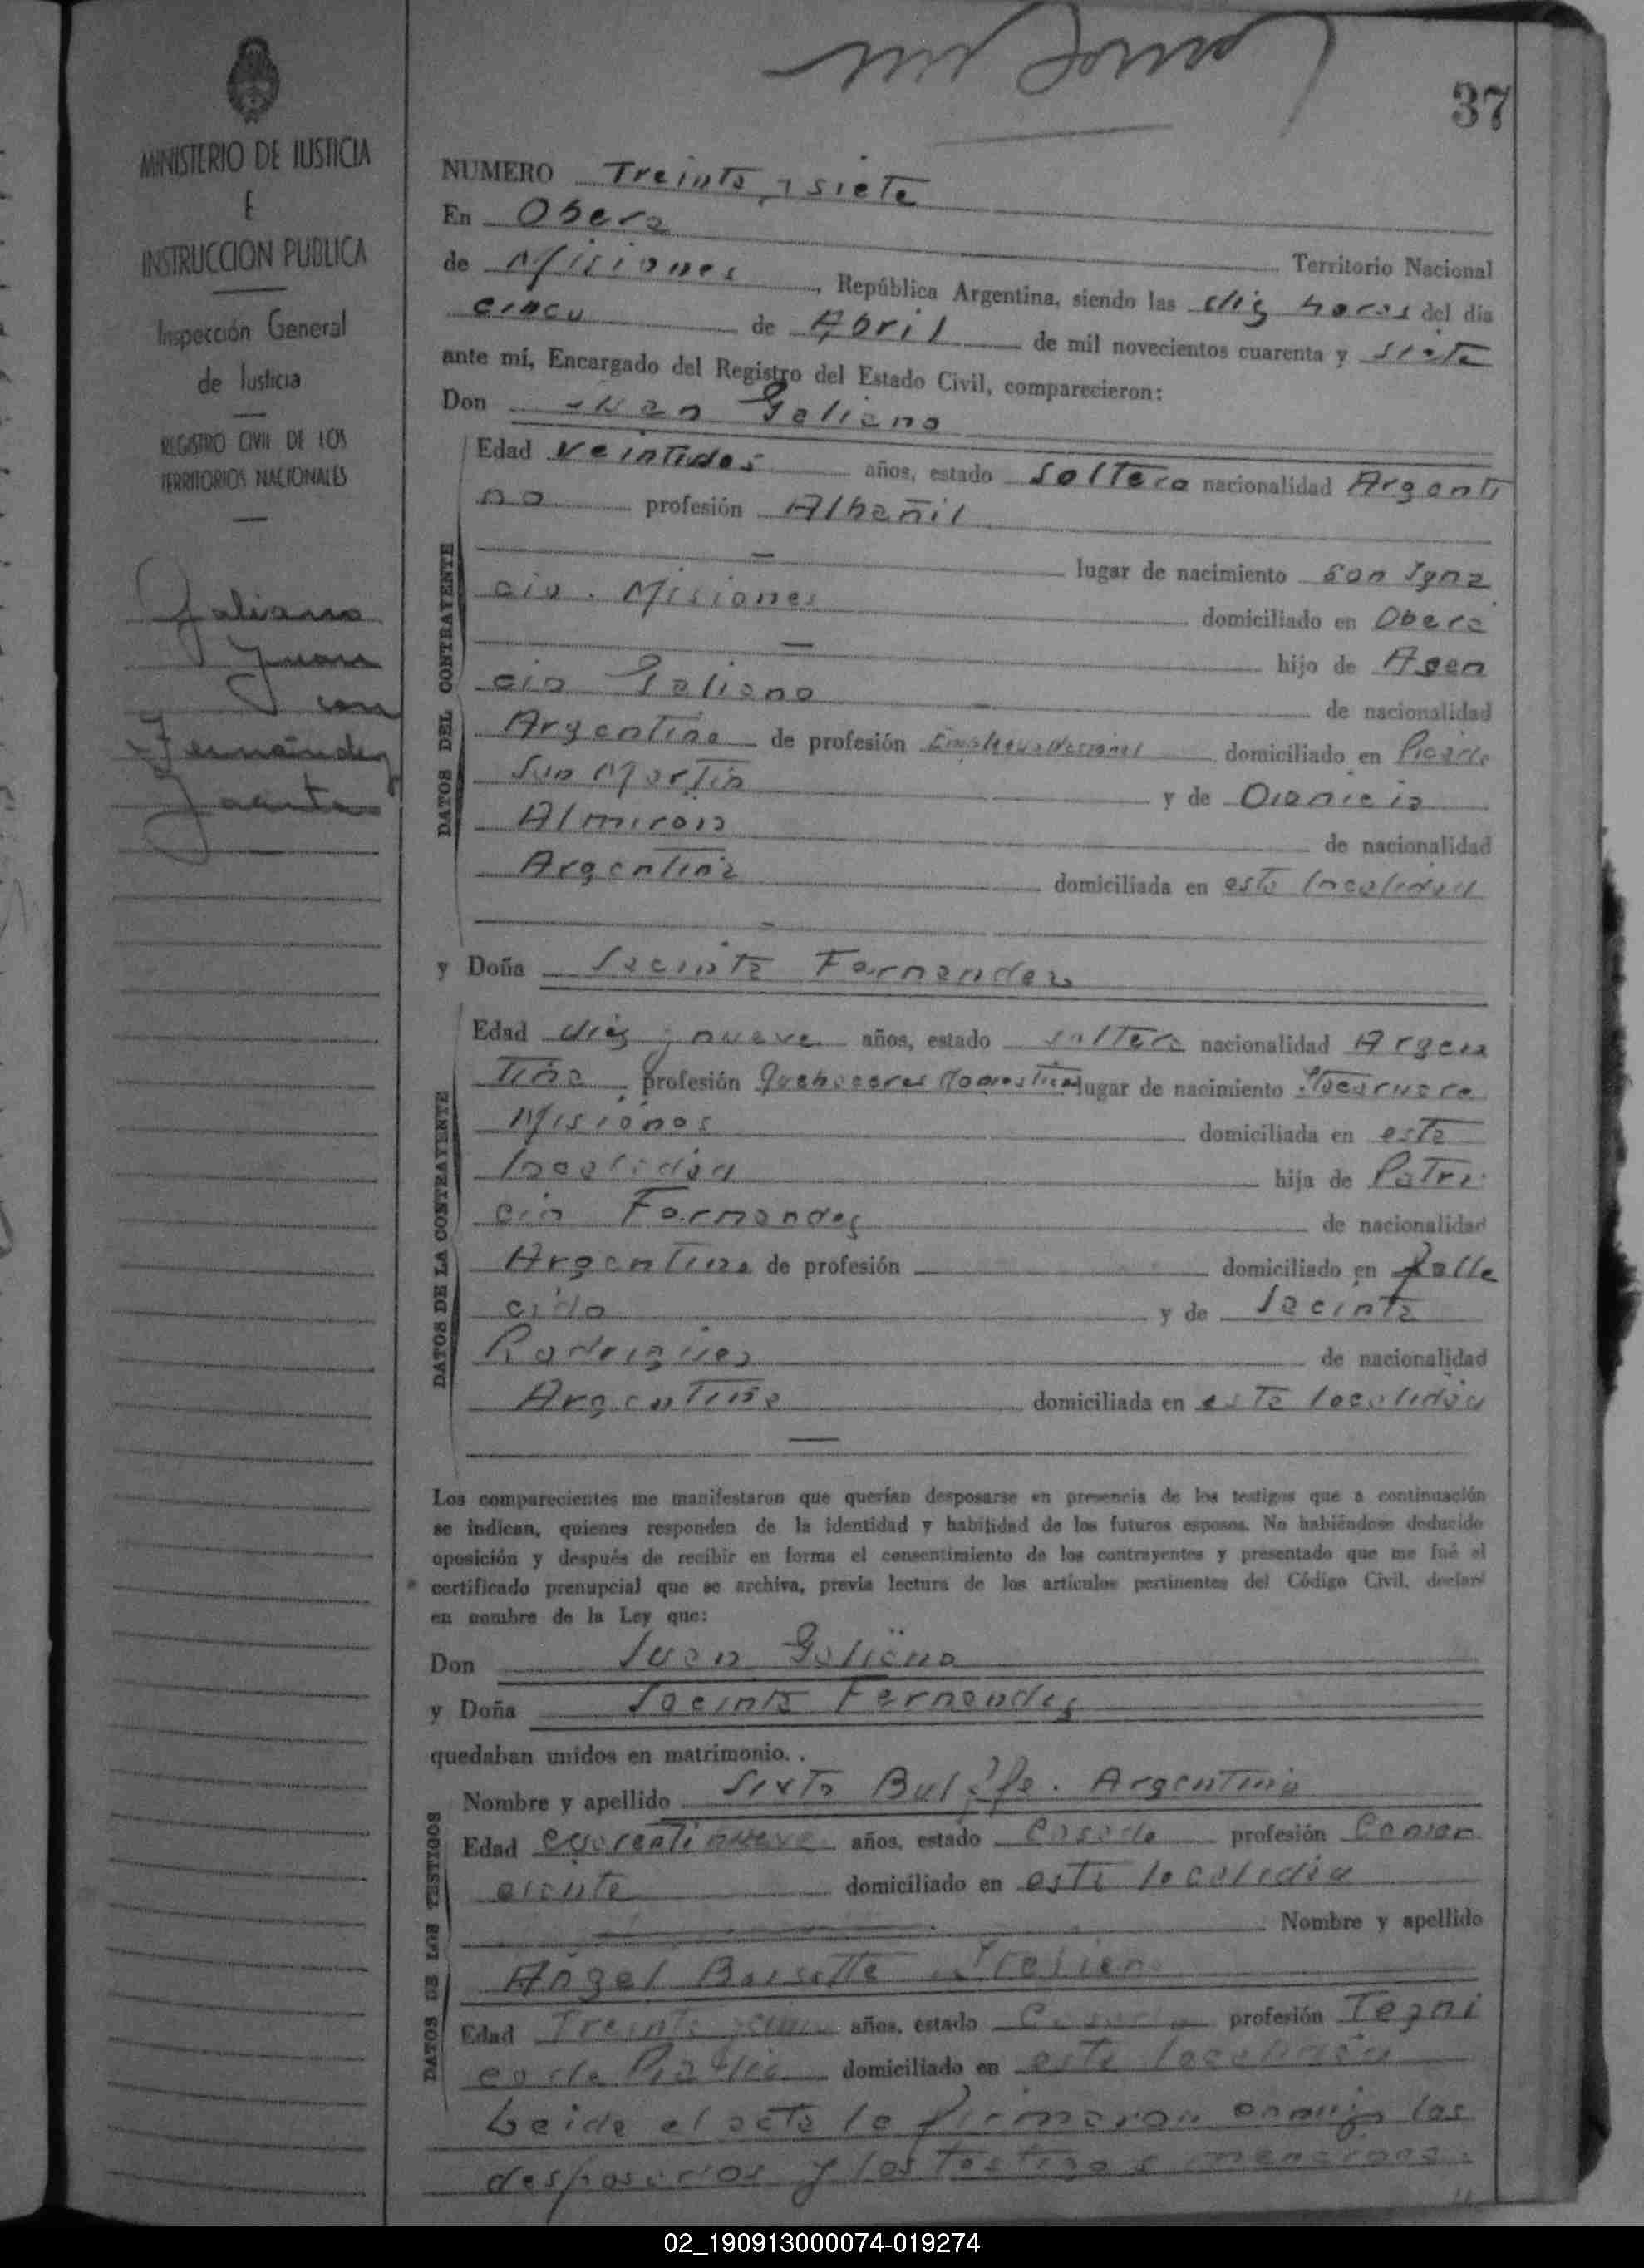 37
MINISTERIO DE JUSTICIA
E
INSTRUCCION PUBLICA
Inspección General
de Justicia
REGISTRO CIVIL DE LOS
TERRITORIOS NACIONALES
Galiano
Juan
con
Fernández
Jacinta
NUMERO Treinta y siete
En Obera
Territorio Nacional
de Misiones, República Argentina, siendo las diez horas del día
cinco de Abril de mil novecientos cuarenta y siete
ante mí, Encargado del Registro del Estado Civil, comparecieron:
Don Juan Galiano
DATOS DEL CONTRAYENTE
Edad veintidos años, estado soltero nacionalidad Argenti
no profesión Albañil
lugar de nacimiento San Igna
cio. Misiones domiciliado en Obera
hijo de Asen
cio Galiano de nacionalidad
Argentino de profesión domiciliado en Picada
San Martin y de Dionicia
Almiron de nacionalidad
Argentina domiciliada en esta localidad
y Doña Jacinta Fernandez
DATOS DE LA CONTRAYENTE
Edad diez y nueve años, estado soltera nacionalidad Argen
tina profesión Quehaceres domesticos lugar de nacimiento
Misiones domiciliada en esta
localidad hija de Patri
cio Fernandez de nacionalidad
Argentina de profesión domiciliado en falle
cido y de Jacinta
Rodriguez de nacionalidad
Argentina domiciliada en esta localidad
Los comparecientes me manifestaron que querían desposarse en presencia de los testigos que a continuación
se indican, quienes responden de la identidad y habilidad de los futuros esposos. No habiéndose deducido
oposición y después de recibir en forma el consentimiento de los contrayentes y presentado que me fué el
certificado prenupcial que se archiva, previa lectura de los artículos pertinentes del Código Civil, declaré
en nombre de la Ley que:
Don Juan Galiano
y Doña Jacinta Fernandez
quedaban unidos en matrimonio. .
DATOS DE LOS TESTIGOS
Nombre y apellido Sixto Argentino
Edad cuarentinueve años, estado Casado profesión Comer
ciante domiciliado en esta localidad
Nombre y apellido
Angel
Edad Treinta años, estado Casado profesión Tegni
co de domiciliado en esta localidad
Leida el acta la firmaron conmigo los
desposorios y los testigos
02_190913000074-019274